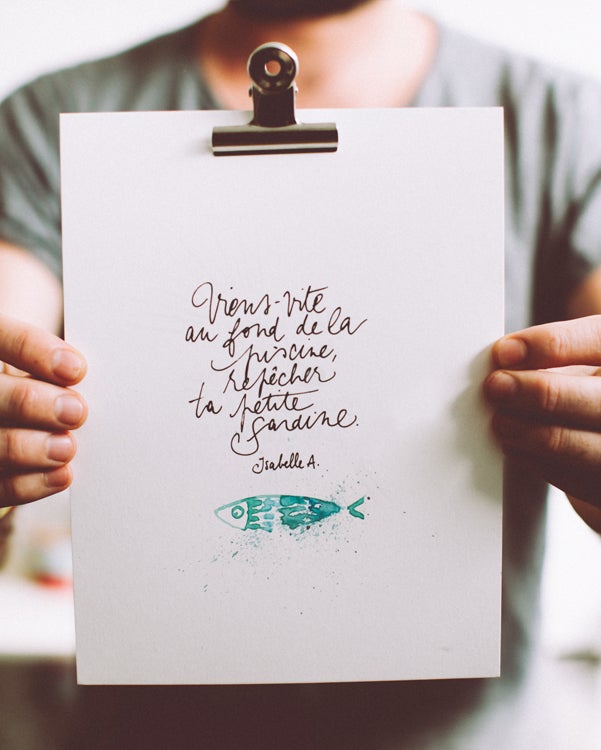 Viens-vite
au fond de la
piscine,
repêcher
ta petite
sardine.
Isabelle A.